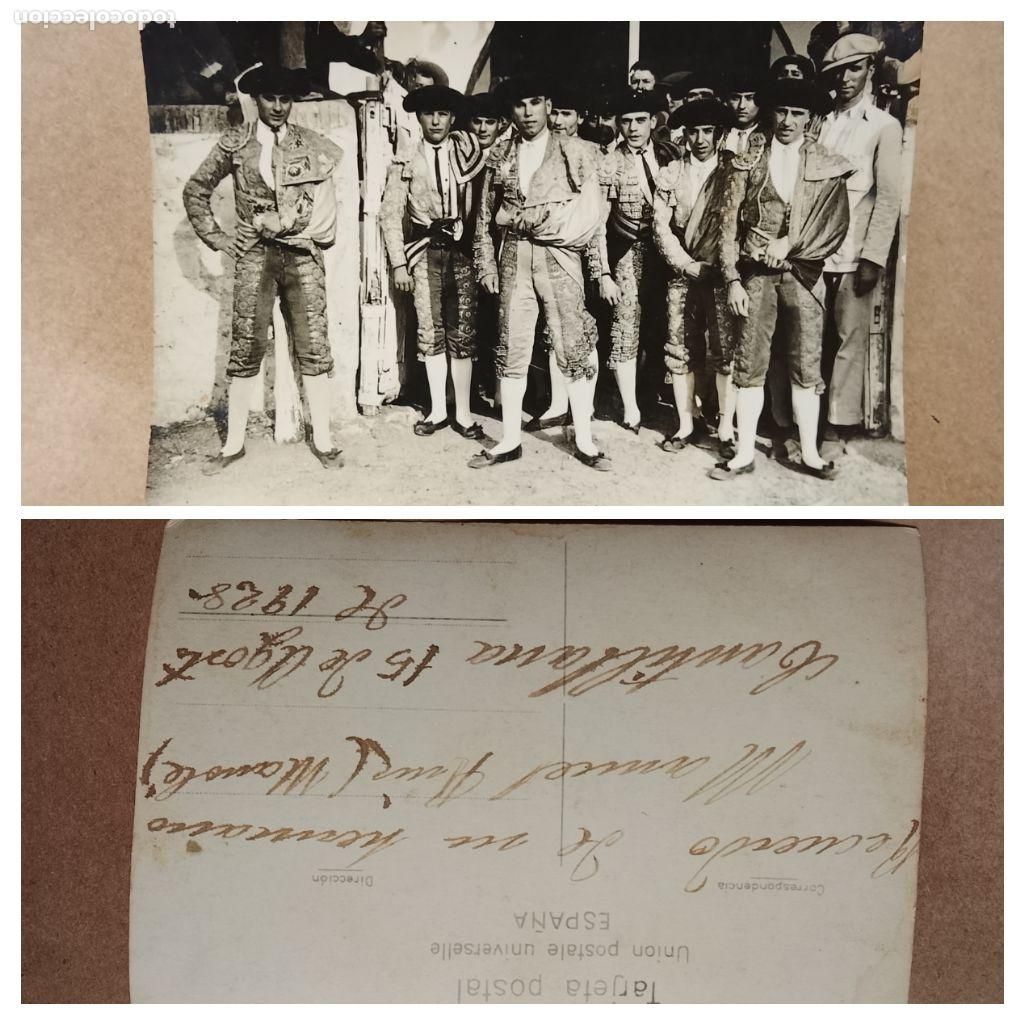 todocoleccion
Tarjeta postal
Union postale universelle
ESPAÑA
Correspondencia
Dirección
Recuerdo de su hermano
Manuel Ruiz (Manolé)
Cantillana 15 de Agosto
de 1928